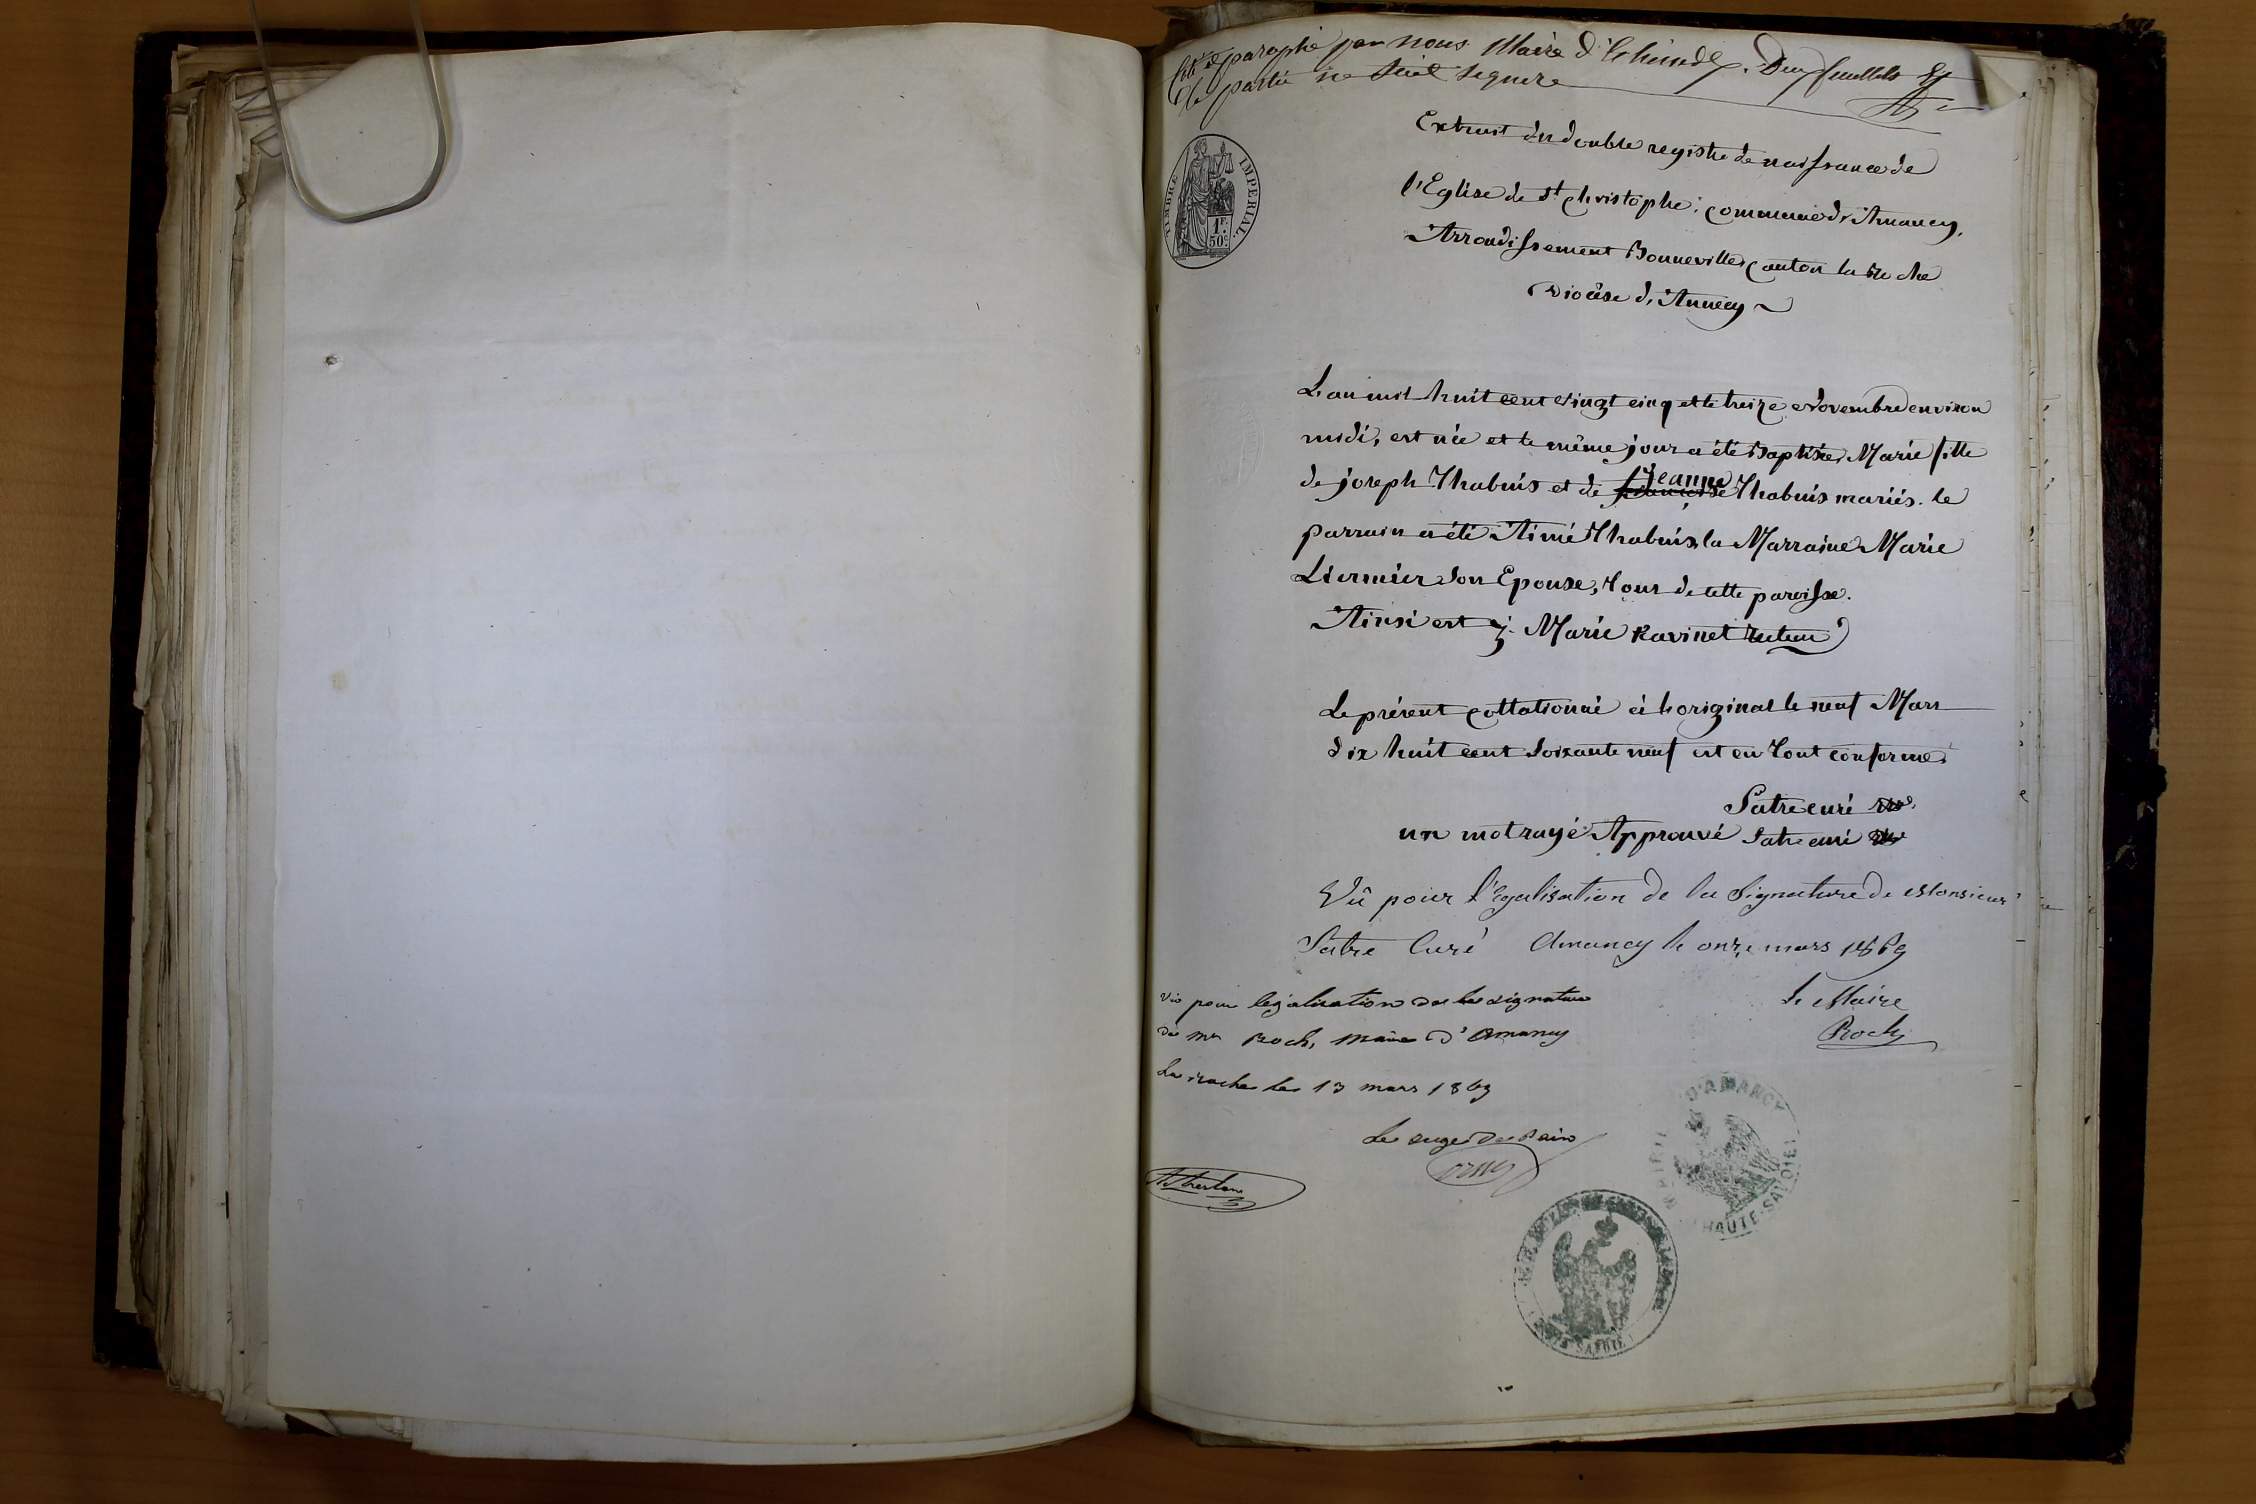 paraphé par nous Maire d'
partie ne
TIMBRE IMPERIAL.
1F.
50c
Extrait du double registre de naissance de
l'Eglise de St Christophe: commune d'Amancy,
Arrondissement Bonneville, canton la Roche
Diocèse d'Annecy
L'an mil huit cent vingt cinq et le treize Novembre environ
midi, est née et le même jour a été Baptisée, Marie fille
de joseph Thabuis et de Jeanne Thabuis mariés. le
parrain a été Aimé Thabuis, la Marraine Marie
Liermier son Epouse, tous de cette paroisse.
Ainsi est j. Marie Ravinet
Le présent collationné à l'original le neuf Mars
dix huit cent soixante neuf est en tout conforme
Satre curé
un mot rayé Approuvé Satre curé
Vû pour l'égalisation de la Signature de Monsieur
Satre Curé Amancy le onze mars 1869
vu pour légalisation de la signature
de Mr Roch, maire d'Amancy
Le Maire
Roch
La roche le 13 mars 1869
Le Juge de Paix
MAIRIE D'AMANCY
HAUTE-SAVOIE
SAVOIE